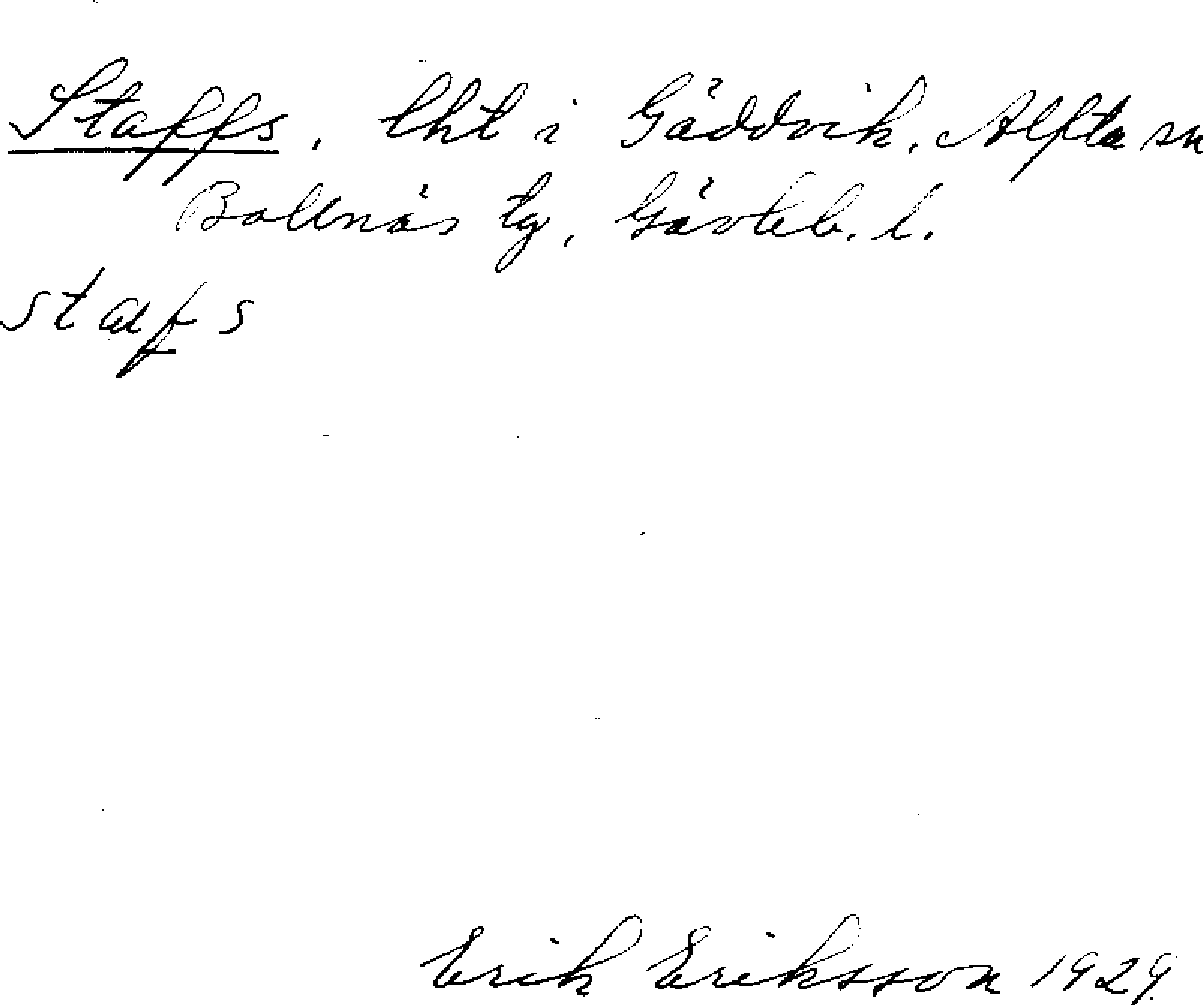 Staffs, lht i Gäddvik, Alfta sn
Bollnäs tg, Gävleb. l.
staf s
Erik Eriksson 1929